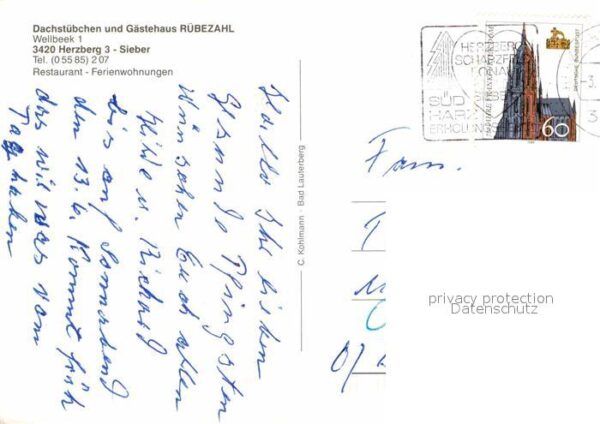 Dachstübchen und Gästehaus RÜBEZAHL
Wellbeek 1
3420 Herzberg 3 - Sieber
Tel. (0 55 85) 2 07
Restaurant - Ferienwohnungen
Hallo Ihr Lieben
Gesunde Pfingsten
Wünschen Euch allen
Hilde u. Richard
bis auf Sonnabend
den 13.6. Kommt früh
das wir was vom
Tag haben
C. Kohlmann · Bad Lauterberg
HERZBERG
SCHARZFELD
LONAU
SÜD
HARZ
DEUTSCHE BUNDESPOST
60
Fam.
privacy protection
Datenschutz